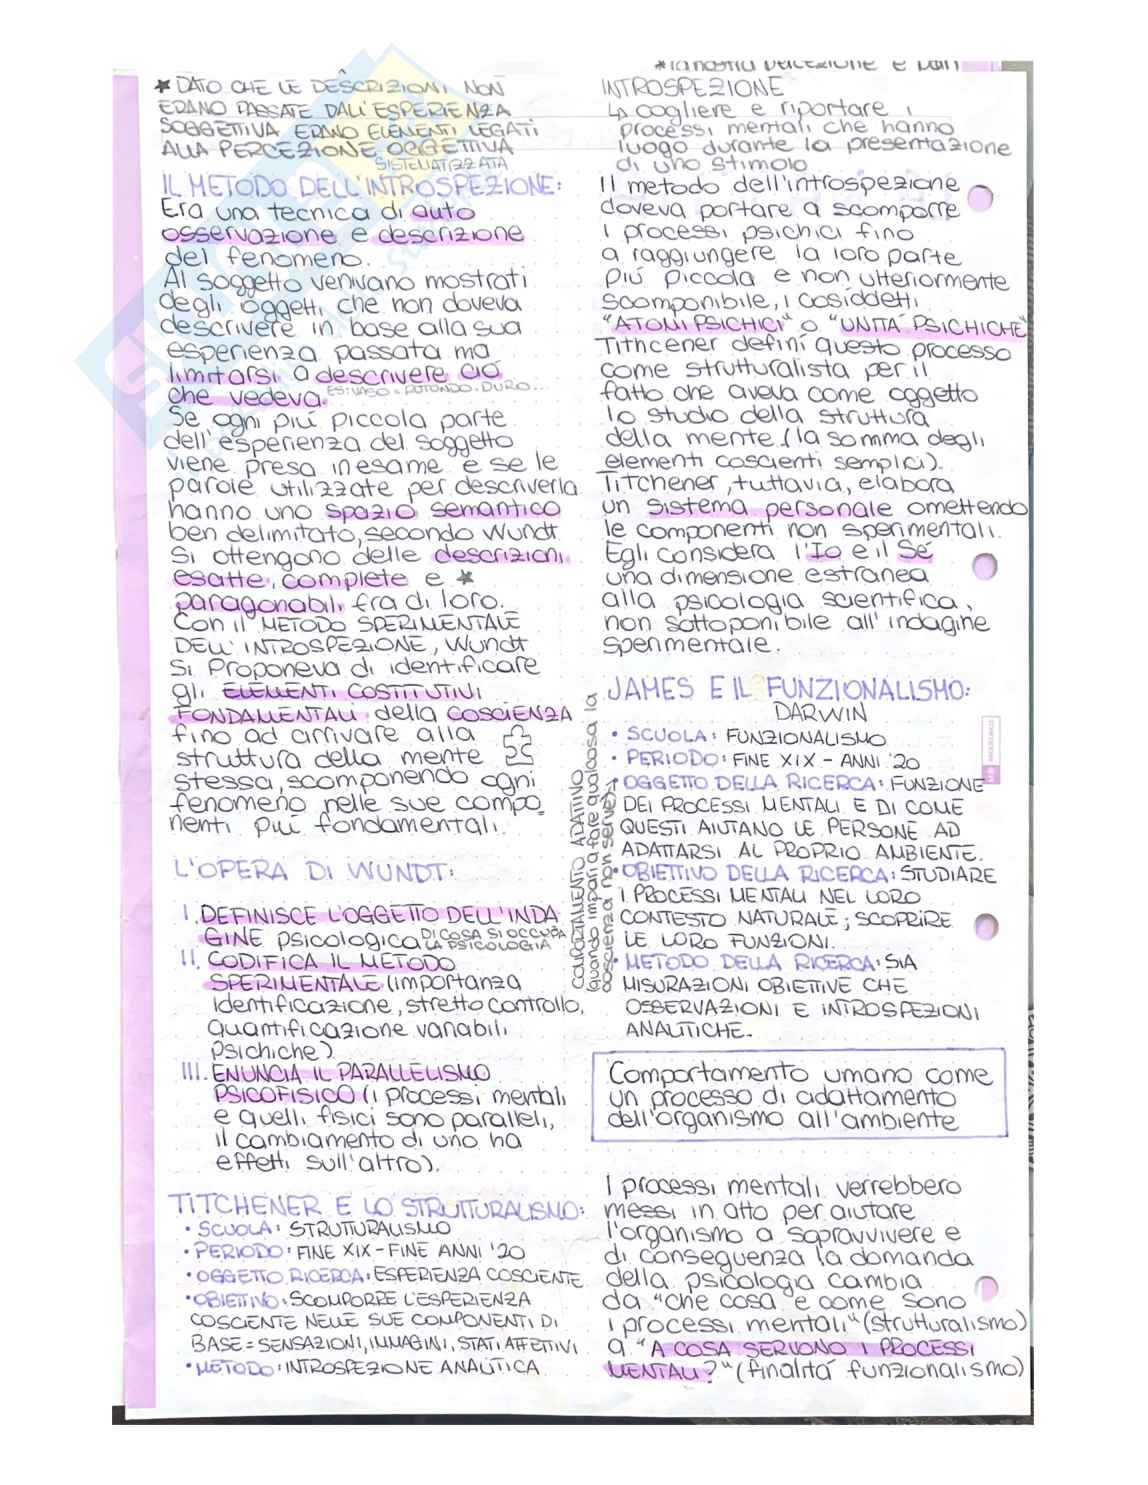 ★ DATO CHE LE DESCRIZIONI NON
ERANO PASSATE DALL'ESPERIENZA
SOGGETTIVA ERANO ELEMENTI LEGATI
ALLA PERCEZIONE OGGETTIVA
SISTEMATIZZATA
IL METODO DELL'INTROSPEZIONE:
Era una tecnica di auto
osservazione e descrizione
del fenomeno.
Al soggetto venivano mostrati
degli oggetti che non doveva
descrivere in base alla sua
esperienza passata ma
limitarsi a descrivere ciò
che vedeva. ES: VASO = ROTONDO. DURO...
Se ogni piú piccola parte
dell'esperienza del soggetto
viene presa in esame e se le
parole utilizzate per descriverla
hanno uno spazio semantico
ben delimitato, secondo Wundt
si ottengono delle descrizioni
esatte, complete e ★
paragonabili fra di loro.
Con il METODO SPERIMENTALE
DELL'INTROSPEZIONE, Wundt
si proponeva di identificare
gli ELEMENTI COSTITUTIVI
FONDAMENTALI della COSCIENZA
fino ad arrivare alla
struttura della mente
stessa, scomponendo ogni
fenomeno nelle sue compo
nenti piú fondamentali.
L'OPERA DI WUNDT:
I. DEFINISCE L'OGGETTO DELL'INDA
GINE psicologica DI COSA SI OCCUPA
LA PSICOLOGIA
II. CODIFICA IL METODO
SPERIMENTALE (importanza
identificazione, stretto controllo,
quantificazione variabili
psichiche)
III. ENUNCIA IL PARALLELISMO
PSICOFISICO (i processi mentali
e quelli fisici sono paralleli,
il cambiamento di uno ha
effetti sull'altro).
TITCHENER E LO STRUTTURALISMO:
• SCUOLA: STRUTTURALISMO
• PERIODO: FINE XIX - FINE ANNI '20
• OGGETTO RICERCA: ESPERIENZA COSCIENTE
• OBIETTIVO: SCOMPORRE L'ESPERIENZA
COSCIENTE NELLE SUE COMPONENTI DI
BASE = SENSAZIONI, IMMAGINI, STATI AFFETTIVI
• METODO: INTROSPEZIONE ANALITICA
*la nostra percezione e
INTROSPEZIONE
↳ cogliere e riportare i
processi mentali che hanno
luogo durante la presentazione
di uno stimolo
Il metodo dell'introspezione
doveva portare a scomporre
i processi psichici fino
a raggiungere la loro parte
piú piccola e non ulteriormente
scomponibile, i cosiddetti
"ATOMI PSICHICI" o "UNITÁ PSICHICHE"
Tithcener definí questo processo
come strutturalista per il
fatto che aveva come oggetto
lo studio della struttura
della mente (la somma degli
elementi coscienti semplici).
Titchener, tuttavia, elabora
un sistema personale omettendo
le componenti non sperimentali.
Egli considera l'Io e il Sé
una dimensione estranea
alla psicologia scientifica,
non sottoponibile all'indagine
sperimentale.
JAMES E IL FUNZIONALISMO:
DARWIN
• SCUOLA: FUNZIONALISMO
• PERIODO: FINE XIX - ANNI '20
• OGGETTO DELLA RICERCA: FUNZIONE
DEI PROCESSI MENTALI E DI COME
QUESTI AIUTANO LE PERSONE AD
ADATTARSI AL PROPRIO AMBIENTE.
• OBIETTIVO DELLA RICERCA: STUDIARE
I PROCESSI MENTALI NEL LORO
CONTESTO NATURALE; SCOPRIRE
LE LORO FUNZIONI.
• METODO DELLA RICERCA: SIA
MISURAZIONI OBIETTIVE CHE
OSSERVAZIONI E INTROSPEZIONI
ANALITICHE.
COMPORTAMENTO ADATIVO
(quando impari a fare qualcosa la
coscienza non serve)
Comportamento umano come
un processo di adattamento
dell'organismo all'ambiente
I processi mentali verrebbero
messi in atto per aiutare
l'organismo a sopravvivere e
di conseguenza la domanda
della psicologia cambia
da "che cosa e come sono
i processi mentali" (strutturalismo)
a "A COSA SERVONO I PROCESSI
MENTALI?" (finalitá funzionalismo)